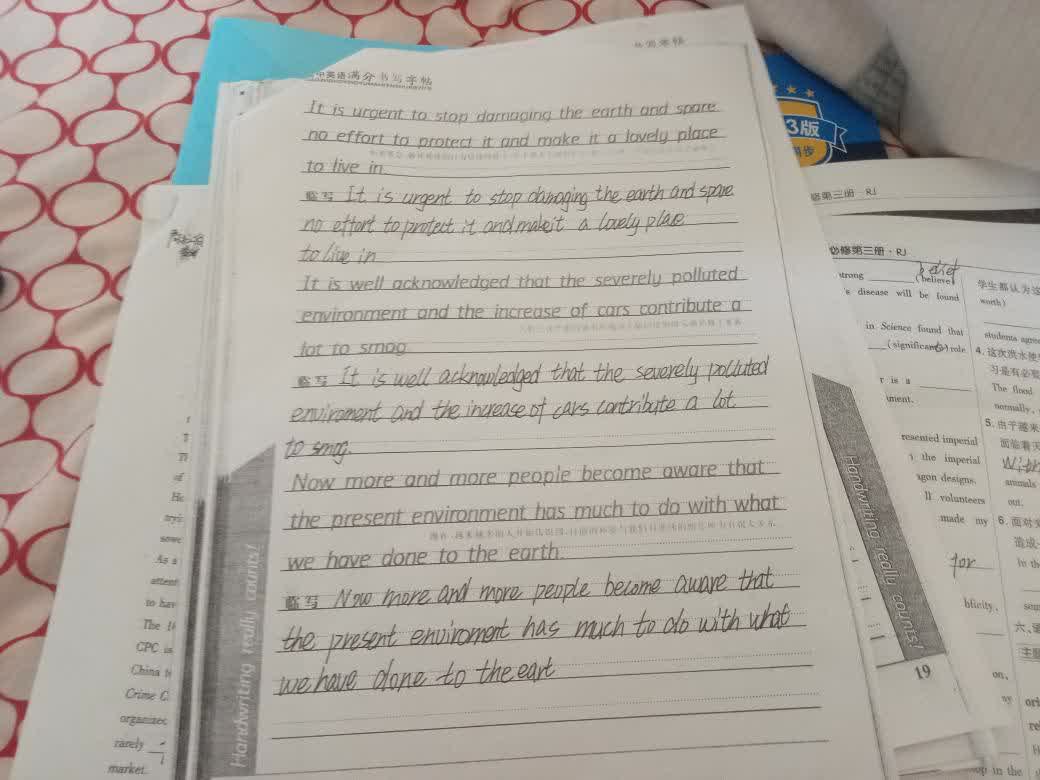 英语满分书写字帖
It is urgent to stop damaging the earth and spare
no effort to protect it and make it a lovely place
to live in
临写 It is urgent to stop damaging the earth and spare
no effort to protect it and make it a lovely place
to live in
It is well acknowledged that the severely polluted
environment and the increase of cars contribute a
lot to smog
临写 It is well acknowledged that the severely polluted
enviroment and the increase of cars contribute a lot
to smog.
Now more and more people become aware that
the present environment has much to do with what
we have done to the earth
临写 Now more and more people become aware that
the present enviroment has much to do with what
we have done to the eart
Handwriting really counts!
Handwriting really counts!
19
3版
必修第三册·RJ
修第三册·RJ
strong (believe)
disease will be found
in Science found that
(significant) role
r is a
resented imperial
the imperial
agon designs.
volunteers
made my
for
学生都认为这
worth)
students agree
4. 这次洪水使
习是有必
The flood
normally,
5. 由于越来
面临着灭
With
animals
out.
6. 面对
造成
In th
六、
主题
on,
As a
attent
to hav
The
CPC is
China
Crime C
organized
rarely
market.